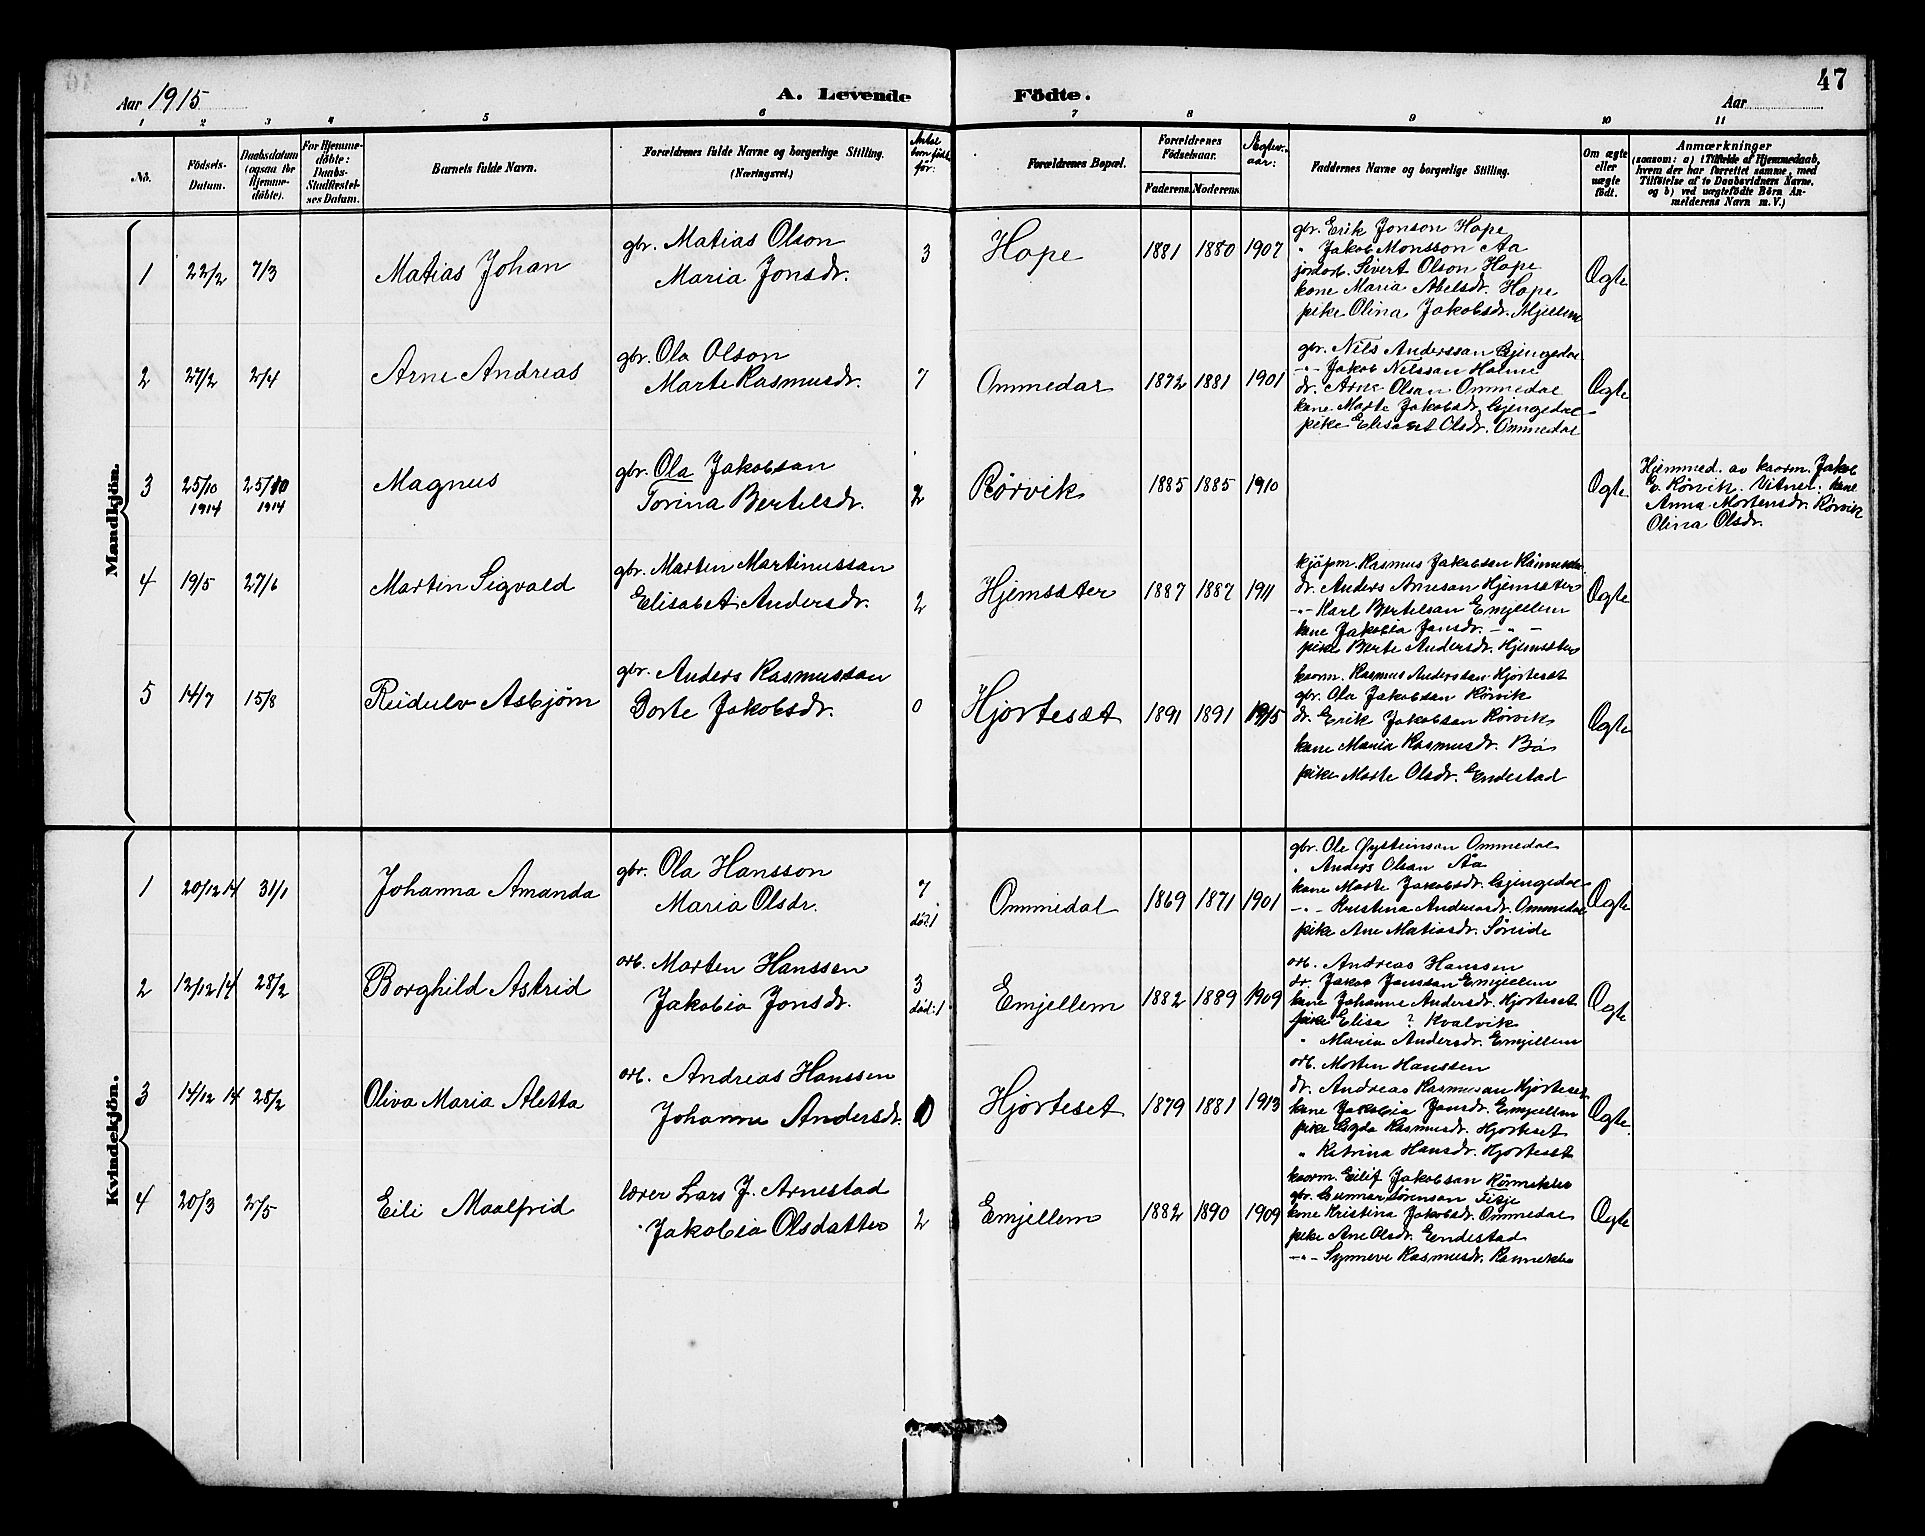 47
Aar 1915
A. Levende Födte.
Aar
1 2 3 4 5 6 7 8 9 10 11
No.
Födsels-Datum.
Daabsdatum (ogsaa for Hjemme-döbte).
For Hjemme-döbte: Daabs-Stadfæstel-ses Datum.
Barnets fulde Navn.
Forældrenes fulde Navne og borgerlige Stilling. (Næringsvei.)
Antal born født før:
Forældrenes Bopæl.
Forældrenes Födselsaar.
Faderens. Moderens.
Ægtev. aar:
Faddernes Navne og borgerlige Stilling.
Om ægte eller uægte födt.
Anmærkninger
(saasom: a) i Tilfælde af Hjemmedaab,
hvem der har forrettet samme, med
Tilföielse af to Daabsvidners Navne,
og b) ved uægtefödte Börn An-
melderens Navn m. V.)
Mandkjön.
1 22/2 7/3 Matias Johan
gbr. Matias Olson
Maria Jonsdr.
3 Hope 1881 1880 1907
gbr. Erik Jonson Hope
" Jakob Monsson Aa
jordarb. Sivert Olson Hope
kone Maria Abelsdr. Hope
pike Olina Jakobsdr. Mjellem
Ægte
2 27/2 2/4 Arne Andreas
gbr. Ola Olson
Marte Rasmusdr.
7 Ommedal 1872 1881 1901
gbr. Nils Anderssan Gjengedal
-"- Jakob Nilsson Holme
dr. Arne Olsan Ommedal
kone Marte Jakobsdr. Gjengedal
pike Elisabet Olsdr. Ommedal
Ægte
3 25/10 1914 25/10 1914 Magnus
gbr. Ola Jakobsan
Torina Bertelsdr.
2 Rørvik 1885 1885 1910
Ægte
Hjemmed. av kaarm. Jakob
E. Rørvik. Vitner: kone
Anna Mortensdr. Rørvik
Olina Olsdr.
4 19/5 27/6 Martin Sigvald
gbr. Marten Martinussan
Elisabet Andersdr.
2 Hjemsæter 1887 1887 1911
kjøpm. Rasmus Jakobsan
dr. Anders Arnesan Hjemsæter
-"- Karl Bertelsan Emjellem
kone Jakobia Jonsdr. -"-
pike Berte Andersdr. Hjemsæter
Ægte
5 14/7 15/8 Reidulv Asbjørn
gbr. Anders Rasmussan
Dorte Jakobsdr.
0 Hjorteset 1891 1891 1915
kaarm. Rasmus Anderssan Hjorteset
gbr. Ola Jakobsan Rørvik
dr. Erik Jakobsan Rørvik
kone Maria Rasmusdr. Bø
pike Marte Olsdr. Endestad
Ægte
Kvindekjön.
1 20/12 14 31/1 Johanna Amanda
gbr. Ola Hansson
Maria Olsdr.
7 død:1 Ommedal 1869 1871 1901
gbr. Ole Øysteinson Ommedal
" Anders Olsan Aa
kone Marte Jakobsdr. Gjengedal
-"- Kristina Andersdr. Ommedal
pike Ane Matiasdr. Søreide
Ægte
2 12/12 14 28/2 Borghild Astrid
arb. Morten Hanssen
Jakobia Jonsdr.
3 død:1 Emjellem 1882 1889 1909
arb. Andreas Hanssen
dr. Jakob Jonssan Emjellem
kone Johanne Andersdr. Hjorteset
pike Elisa ? Kvalvik
" Maria Andersdr. Emjellem
Ægte
3 14/12 14 28/2 Oliva Maria Aletta
arb. Andreas Hanssen
Johanne Andersdr.
0 Hjorteset 1879 1881 1913
arb. Morten Hanssen
dr. Andreas Rasmusan Hjorteset
kone Jakobia Jonsdr. Emjellem
pike Gyda Rasmusdr. Hjorteset
" Katrina Hansdr. Hjorteset
Ægte.
4 20/3 2/5 Eili Maalfrid
lærer Lars J. Arnestad
Jakobia Olsdatter
2 Emjellem 1882 1890 1909
kaarm. Eilif Jakobsan Rønnekleiv
gbr. Gunnar Sørensan Fitje
kone Kristina Jakobsdr. Ommedal
pike Ane Olsdr. Endestad
-"- Synneve Rasmusdr. Rønneklei
Ægte